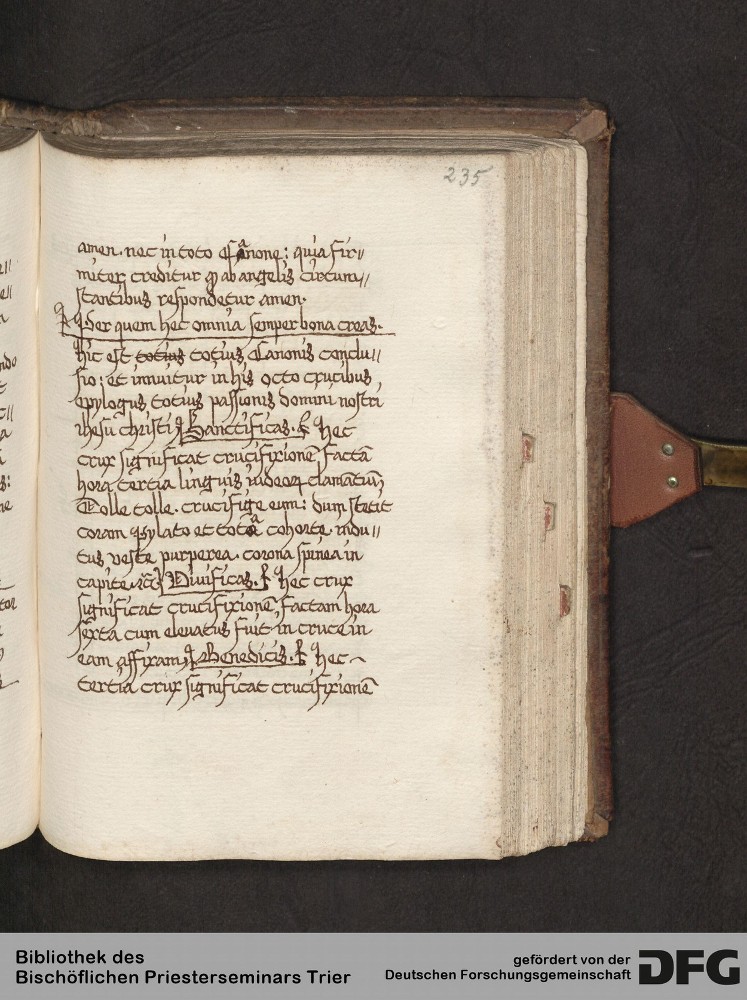 235
amen. nec in toto Canone: quia fir//
miter creditur q ab angelis circum//
stantibus respondetur amen.
Per quem hec omnia semper bona creas.
hic est totius totius Canonis conclu//
sio: et innuitur in his octo crucibus
epylogus totius passionis domini nostri
ihesu christi Sanctificas. ✝ hec
crux significat crucifixionē factā
hora tertia linguis iudeoꝝ clamātiū,
Tolle tolle. crucifige eum: dum stetit
coram pylato et tota cohorte. indu//
tus veste purpurea. corona spinea in
capite. ⁊c̄ Vivificas. ✝ hec crux
significat crucifixionē, factam hora
sexta cum elevatus fuit in cruce in
eam affixam Benedicis. ✝ hec
tertia crux significat crucifixionē
Bibliothek des
Bischöflichen Priesterseminars Trier
gefördert von der
Deutschen Forschungsgemeinschaft
DFG